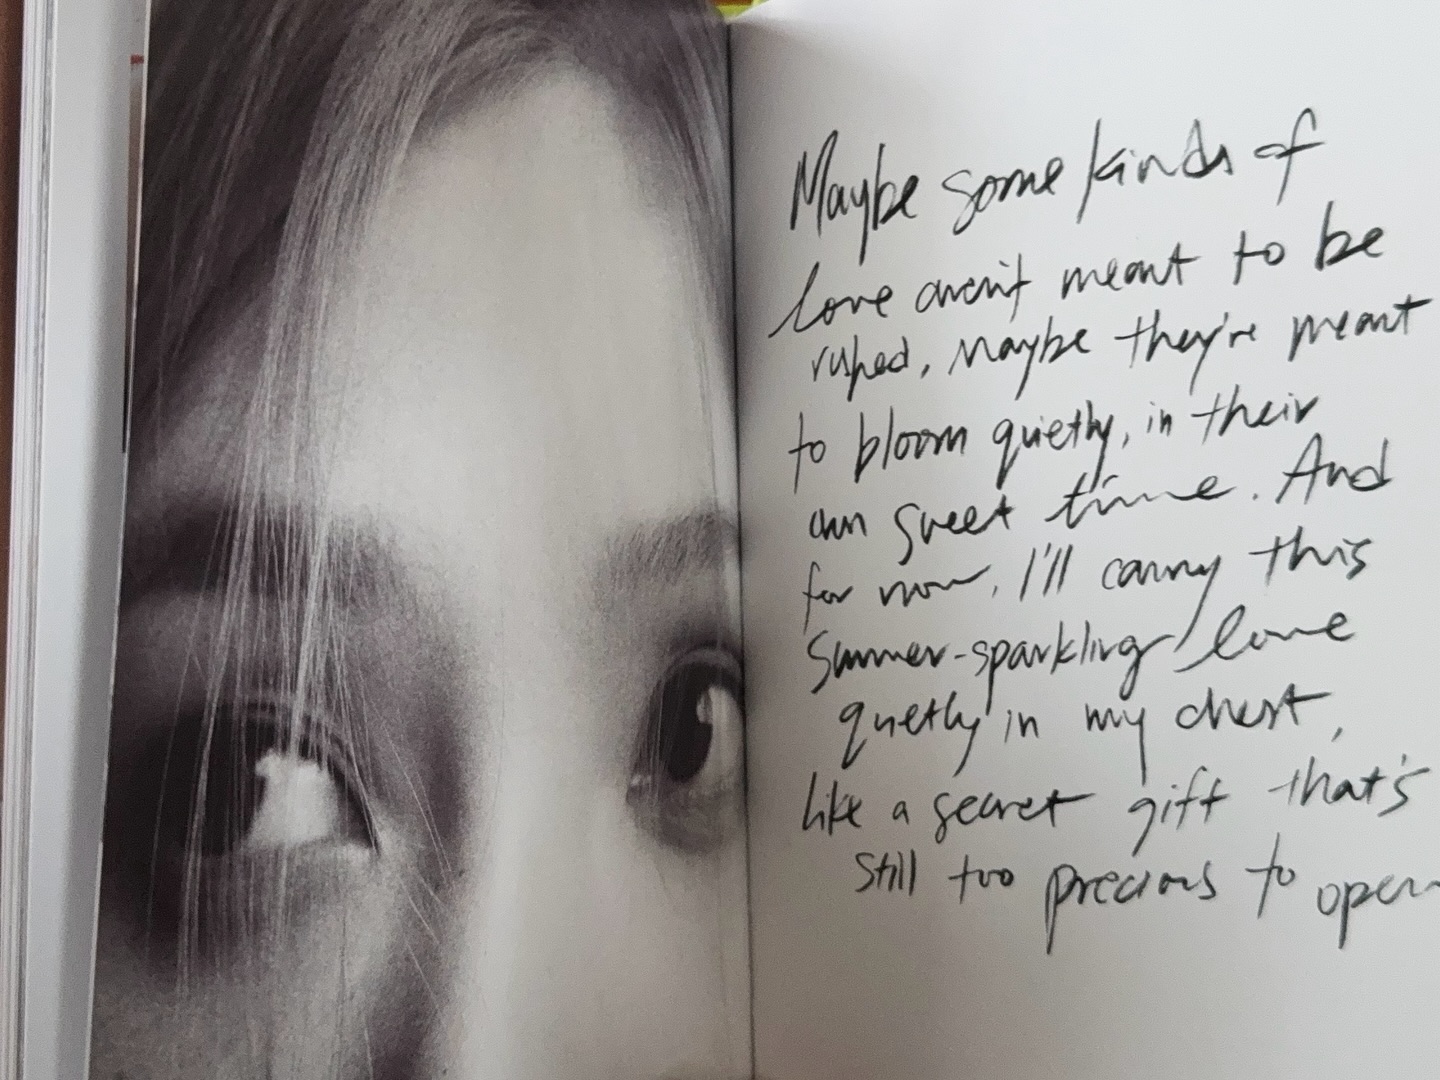 Maybe some kinds of
love aren't meant to be
rushed, Maybe they're meant
to bloom quietly, in their
own sweet time. And
for now, I'll carry this
Summer-sparkling love
quietly in my chest,
like a secret gift that's
still too precious to open